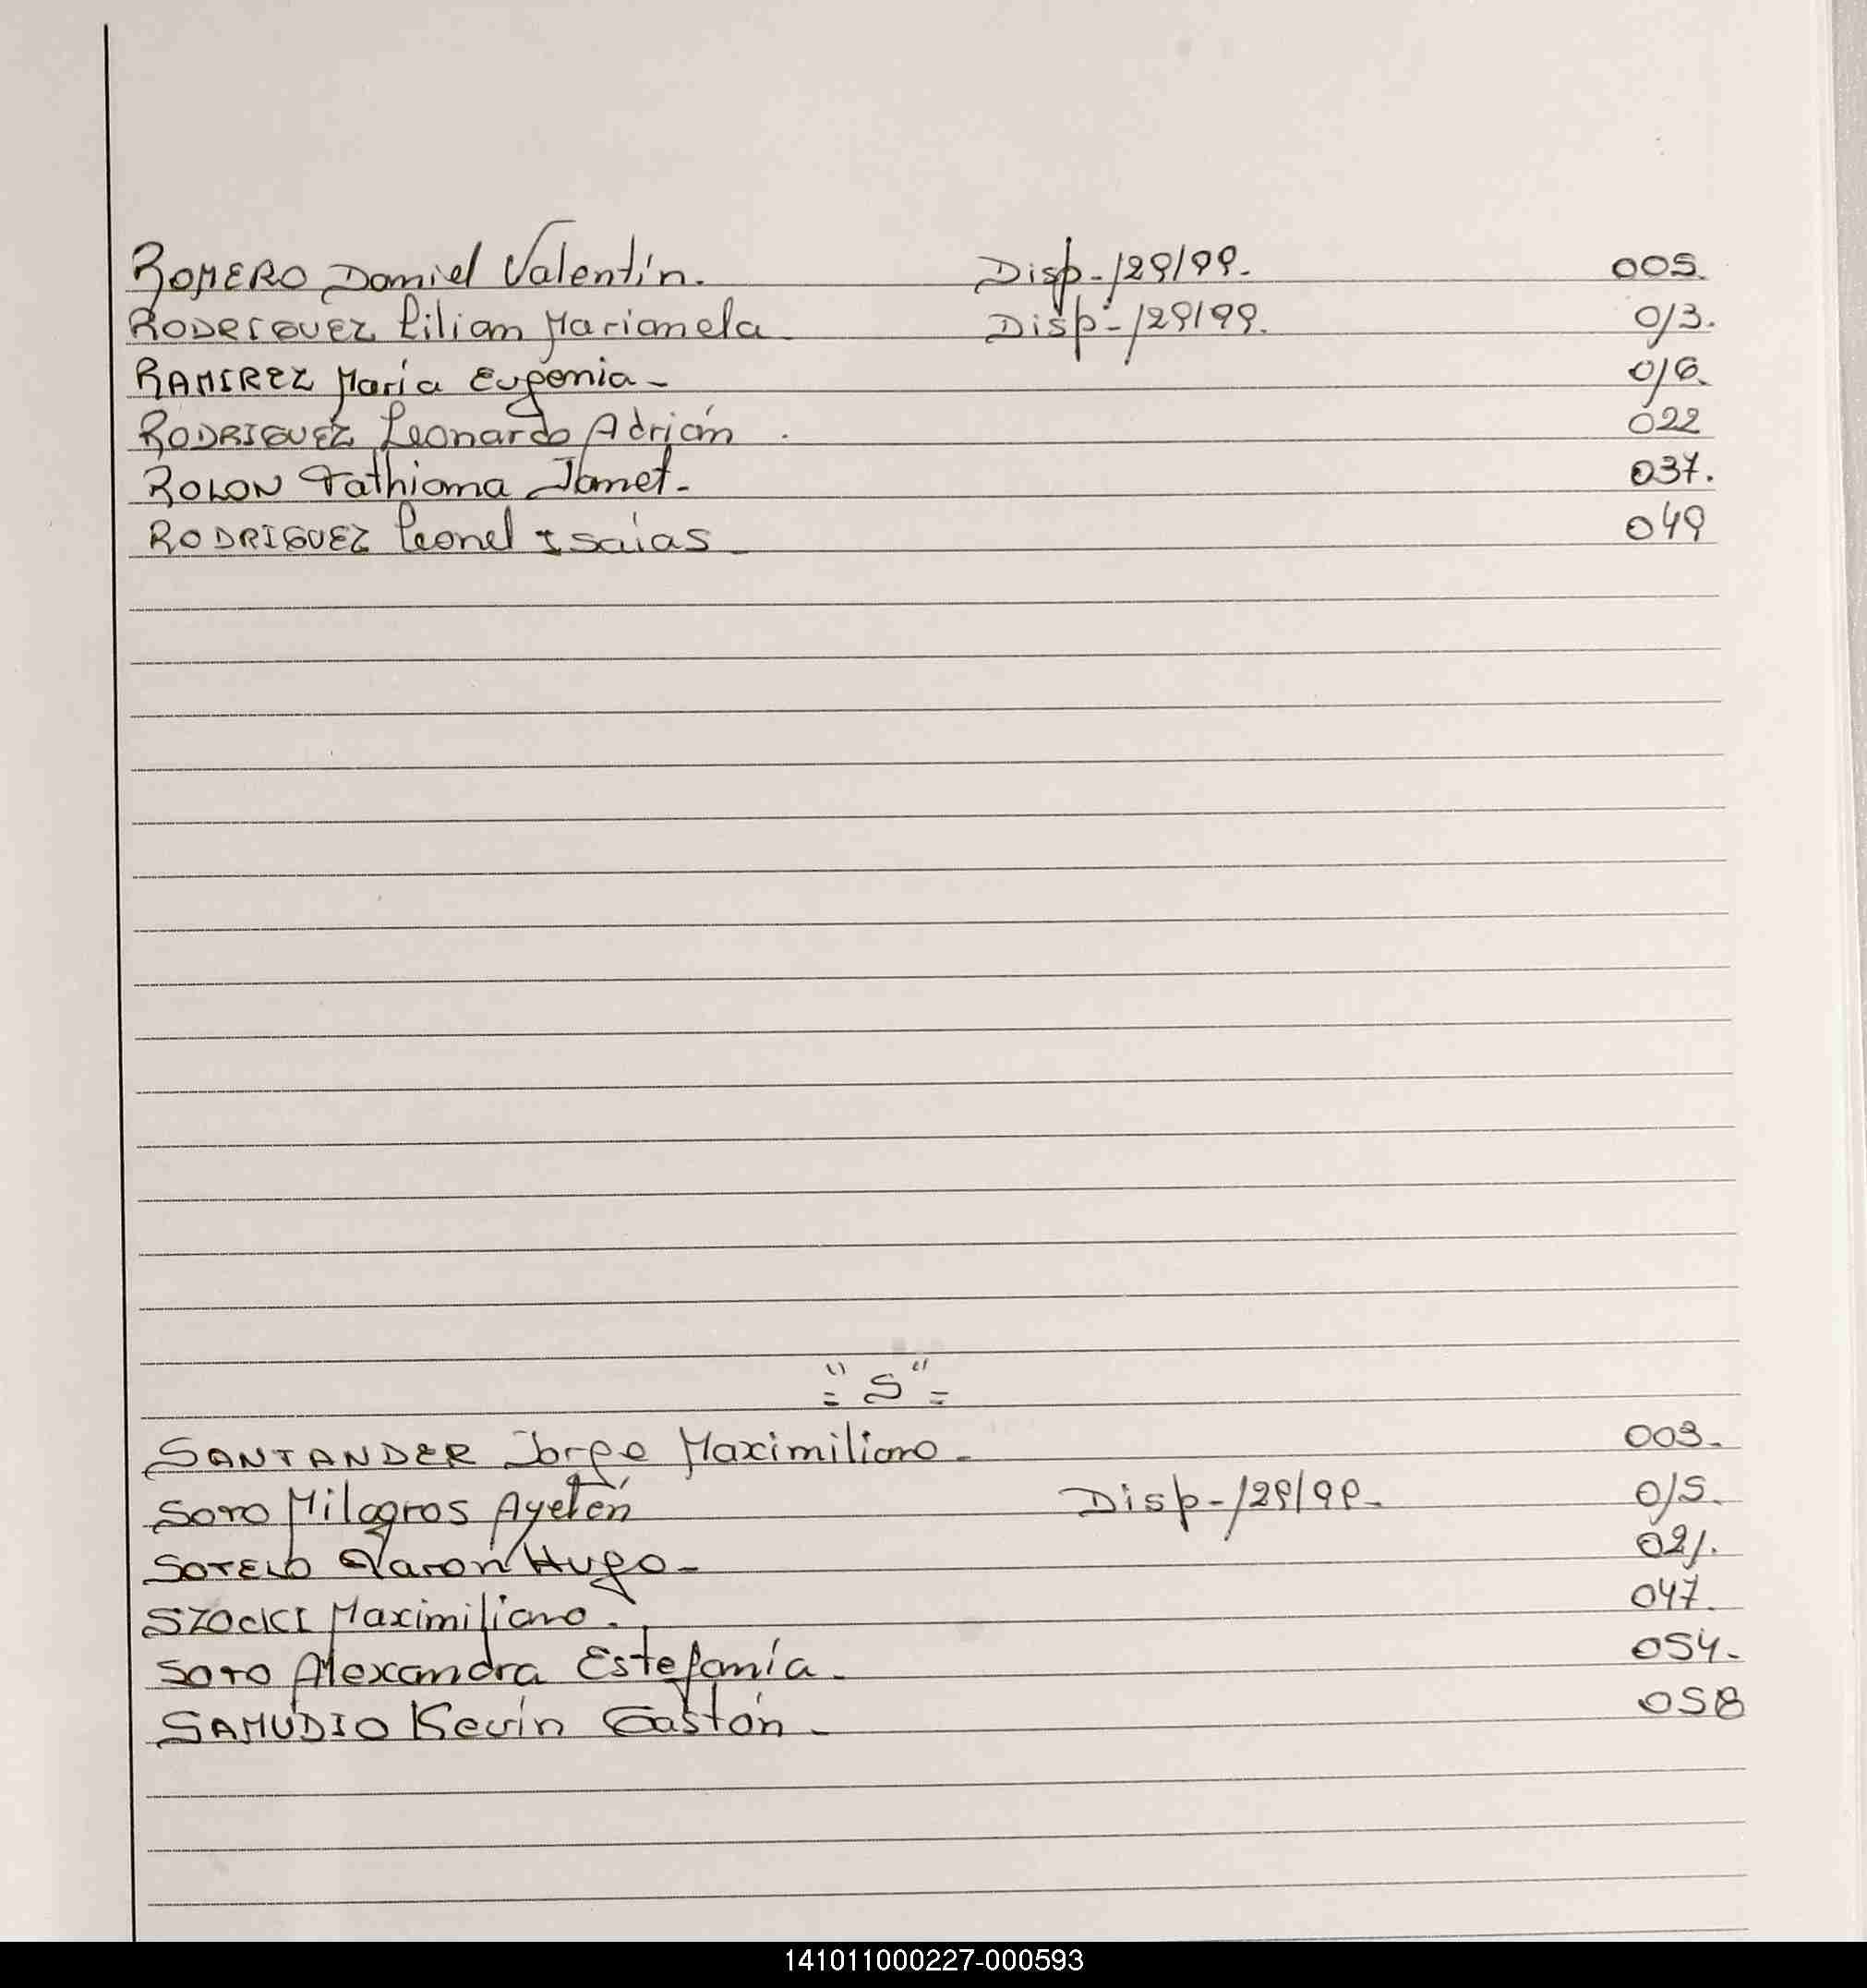 ROMERO Daniel Valentín. Disp-129/99. 005.
RODRIGUEZ Lilian Marianela Disp-129/99. 013.
RAMIREZ María Eugenia- 016.
RODRIGUEZ Leonardo Adrián . 022
ROLON Tathiana Janet- 037.
RODRIGUEZ Leonel Isaías- 049
="S"=
SANTANDER Jorge Maximiliano- 003.
SOTO Milagros Ayelén Disp-129/99- 015.
SOTELO Aarón Hugo- 021.
SZOCKI Maximiliano. 047.
SOTO Alexandra Estefanía- 054-
SAMUDIO Kevin Gastón- 058
141011000227-000593